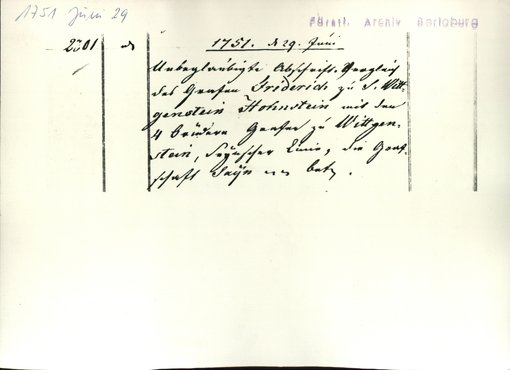 1751 Juni 29
Fürstl. Archiv Berleburg
2301
1751. d. 29. Juni
Unbeglaubigte Abschrift. Vergleich
des Grafen Friderich zu S. Witt-
genstein Hohnstein mit den
4 Brüdern Grafen zu Wittgen-
stein, Seynscher Linie, die Graf-
schaft Sayn betr.